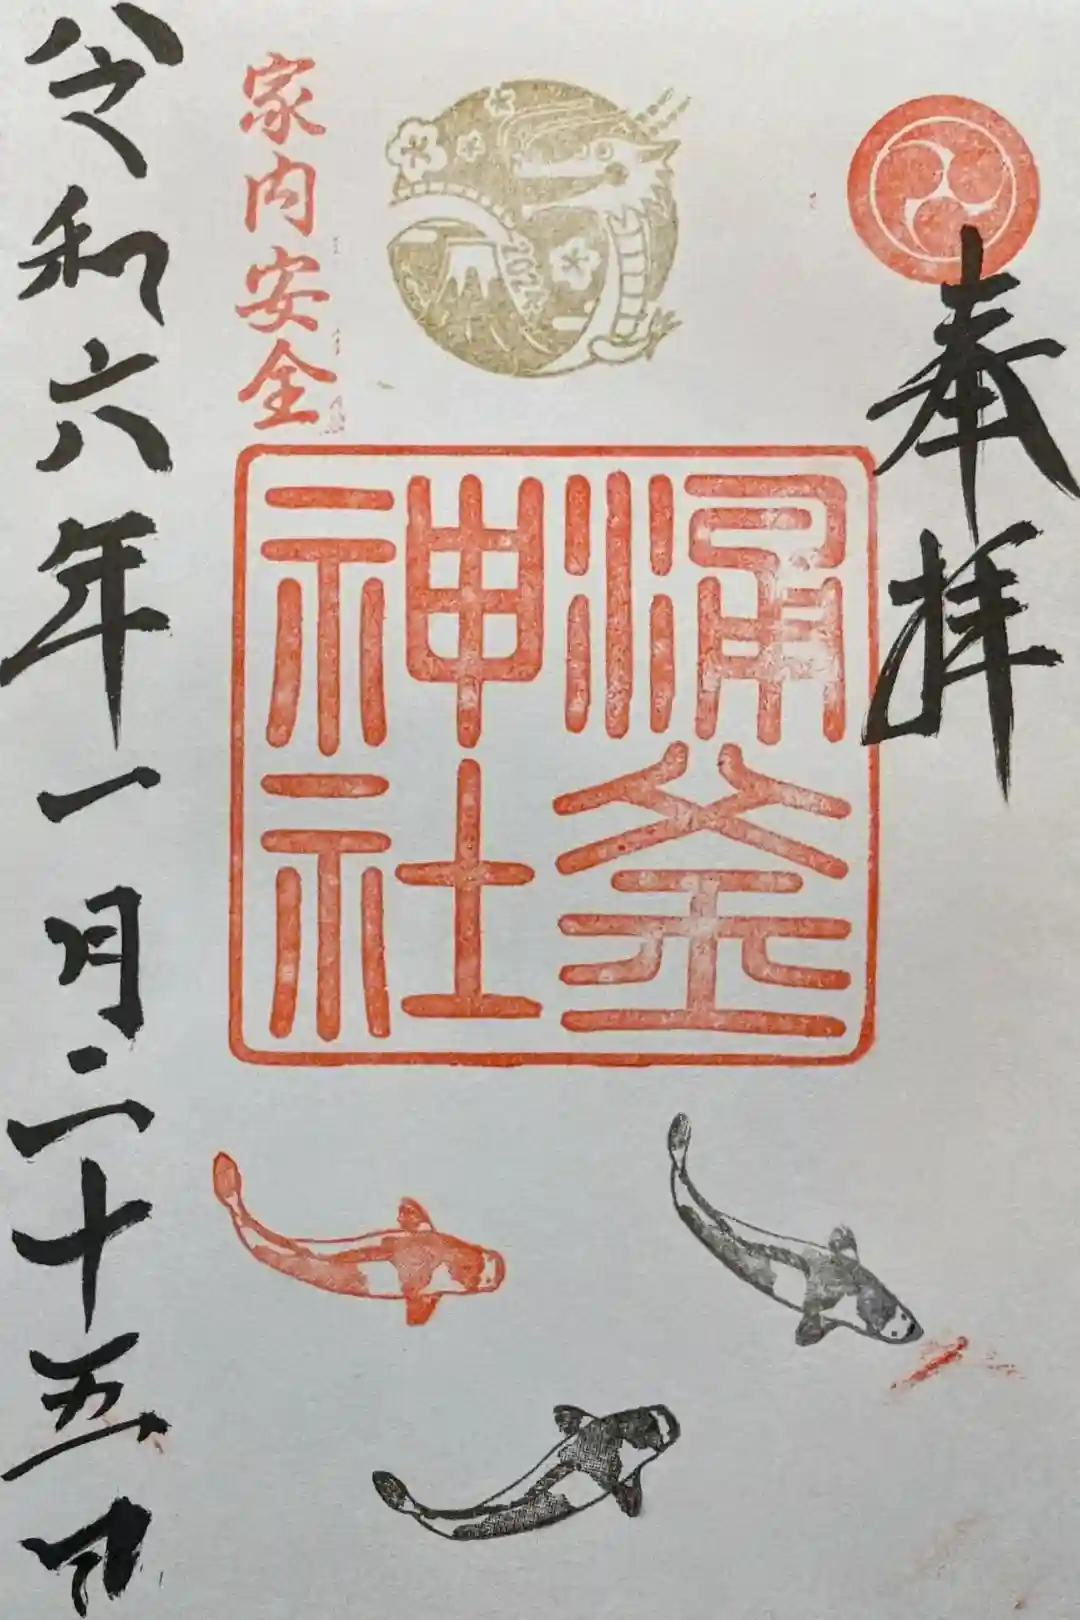 奉拝
湧釜
神社
2024
家内安全
令和六年一月二十五日